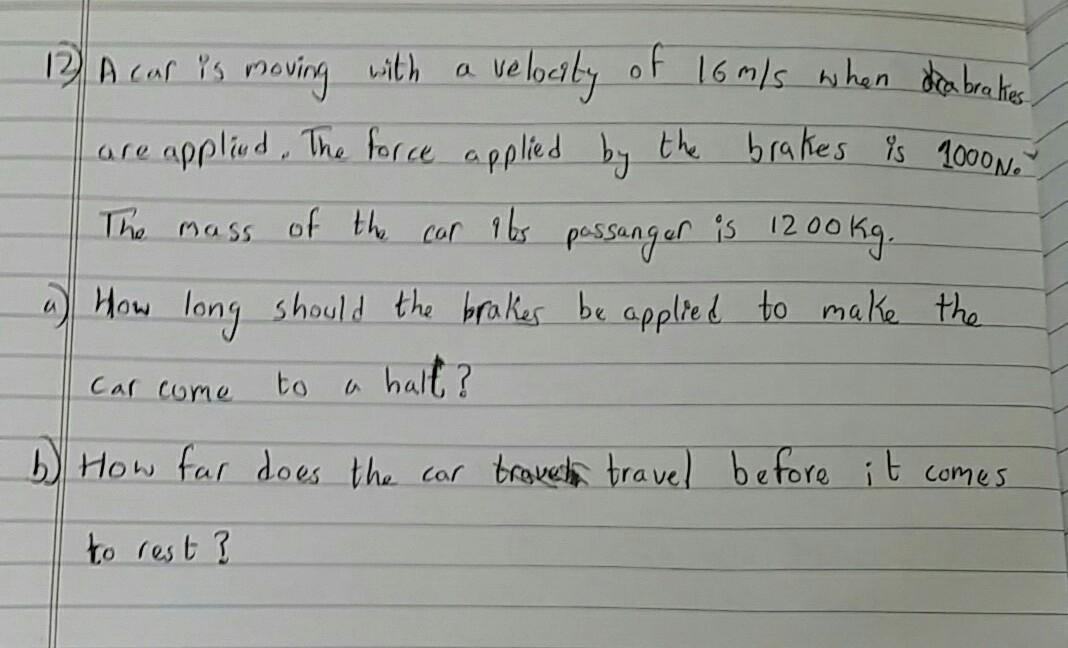 12) A car is moving with a velocity of 16 m/s when brakes
are applied. The force applied by the brakes is 1000N.
The mass of the car its passanger is 1200Kg.
a) How long should the brakes be applied to make the
car come to a halt?
b) How far does the car travel before it comes
to rest?